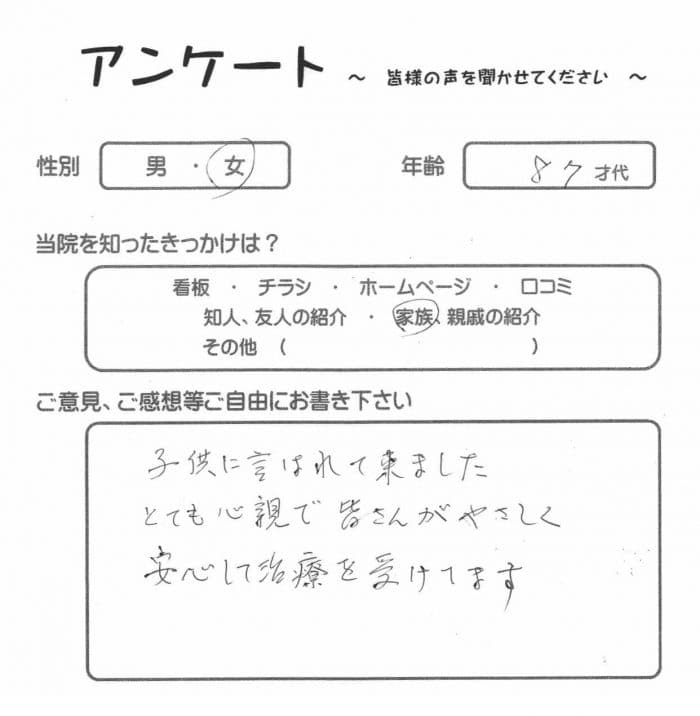 アンケート ~ 皆様の声を聞かせてください ~
性別 男 ・ 女 年齢 87 才代
当院を知ったきっかけは?
看板 ・ チラシ ・ ホームページ ・ 口コミ
知人、友人の紹介 ・ 家族、親戚の紹介
その他 ( )
ご意見、ご感想等ご自由にお書き下さい
子供に言はれて来ました
とても心親で皆さんがやさしく
安心して治療を受けてます